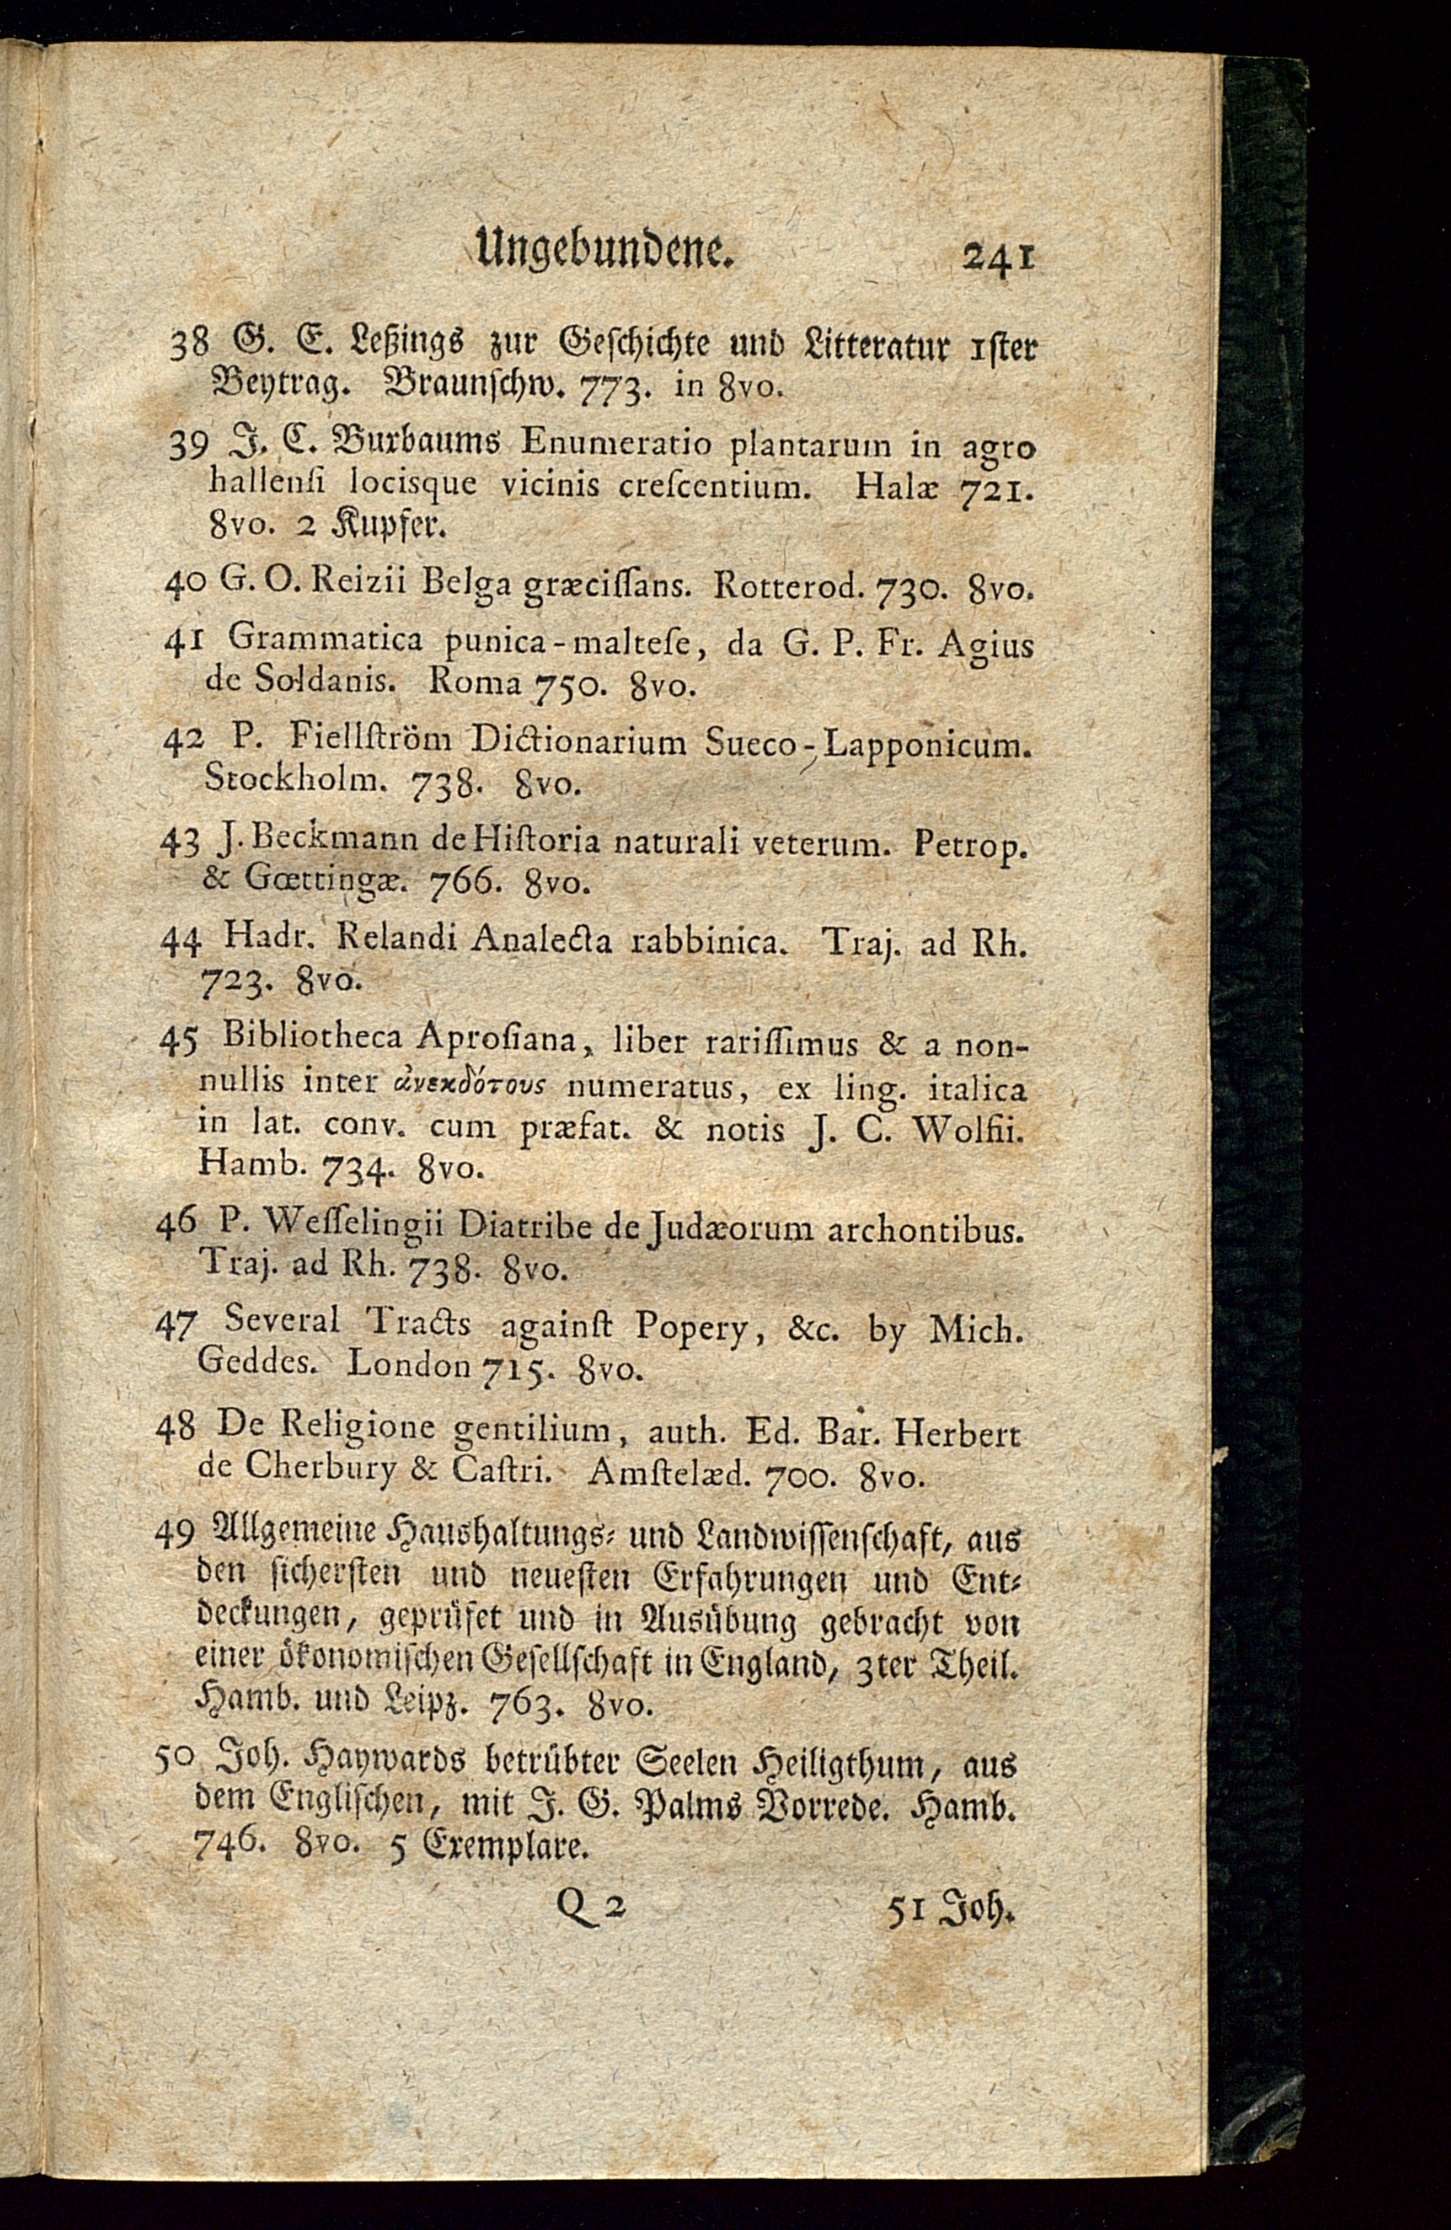 Ungebundene. 241
38 G. E. Leßings zur Geschichte und Litteratur 1ster
Beytrag. Braunschw. 773. in 8vo.
39 J. C. Buxbaums Enumeratio plantarum in agro
hallenſi locisque vicinis creſcentium. Halæ 721.
8vo. 2 Kupfer.
40 G. O. Reizii Belga græciſſans. Rotterod. 730. 8vo.
41 Grammatica punica-malteſe, da G. P. Fr. Agius
de Soldanis. Roma 750. 8vo.
42 P. Fiellſtröm Dictionarium Sueco-Lapponicum.
Stockholm. 738. 8vo.
43 J. Beckmann de Hiſtoria naturali veterum. Petrop.
& Gœttingæ. 766. 8vo.
44 Hadr. Relandi Analecta rabbinica. Traj. ad Rh.
723. 8vo.
45 Bibliotheca Aproſiana, liber rariſſimus & a non-
nullis inter ἀνεκδότους numeratus, ex ling. italica
in lat. conv. cum præfat. & notis J. C. Wolfii.
Hamb. 734. 8vo.
46 P. Weſſelingii Diatribe de Judæorum archontibus.
Traj. ad Rh. 738. 8vo.
47 Several Tracts againſt Popery, &c. by Mich.
Geddes. London 715. 8vo.
48 De Religione gentilium, auth. Ed. Bar. Herbert
de Cherbury & Caſtri. Amſtelæd. 700. 8vo.
49 Allgemeine Haushaltungs- und Landwiſſenſchaft, aus
den ſicherſten und neueſten Erfahrungen und Ent-
deckungen, geprüfet und in Ausübung gebracht von
einer ökonomiſchen Geſellſchaft in England, 3ter Theil.
Hamb. und Leipz. 763. 8vo.
50 Joh. Haywards betrübter Seelen Heiligthum, aus
dem Engliſchen, mit J. G. Palms Vorrede. Hamb.
746. 8vo. 5 Exemplare.
Q 2 51 Joh.